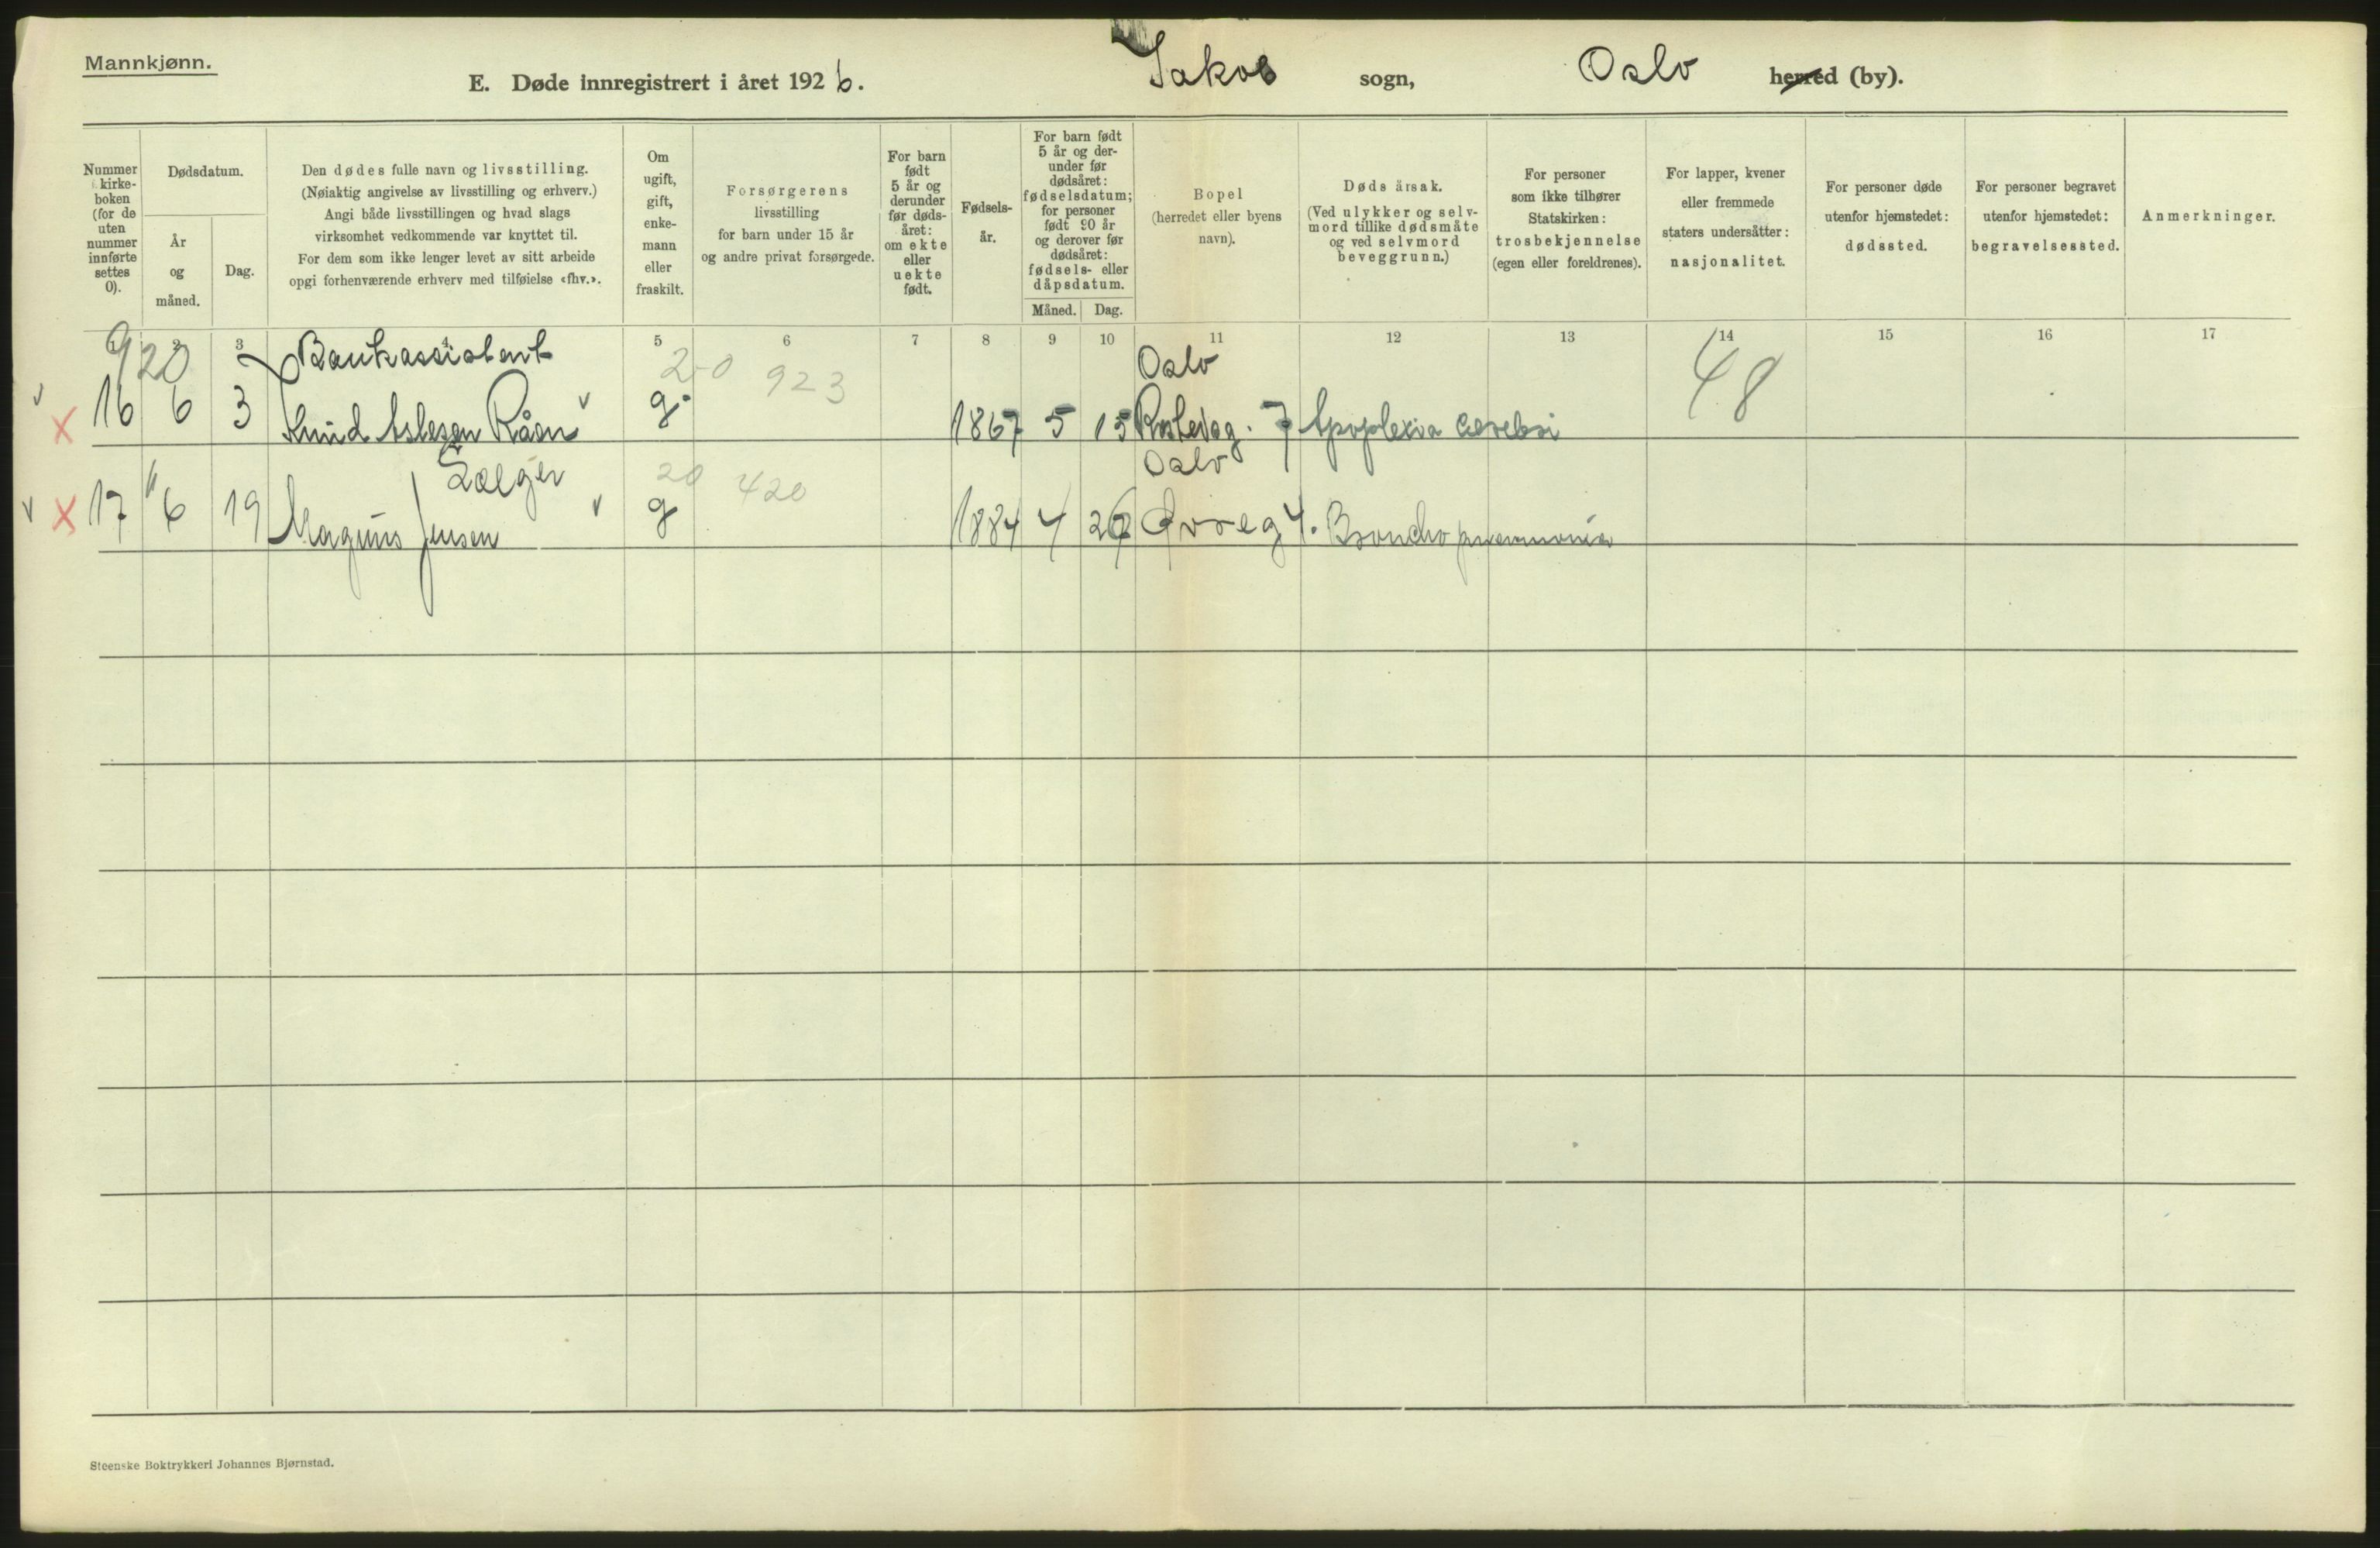 Mannkjønn.
E. Døde innregistrert i året 1926. Jakob sogn, Oslo herred (by).
Nummer i kirke-boken (for de uten nummer innførte settes 0).
Dødsdatum.
År og måned.
Dag.
Den dødes fulle navn og livsstilling.
(Nøiaktig angivelse av livsstilling og erhverv.)
Angi både livsstillingen og hvad slags
virksomhet vedkommende var knyttet til.
For dem som ikke lenger levet av sitt arbeide
opgi forhenværende erhverv med tilføielse «fhv.».
Om ugift, gift, enke-mann eller fraskilt.
Forsørgerens
livsstilling
for barn under 15 år
og andre privat forsørgede.
For barn født 5 år og derunder før døds-året: om ekte eller uekte født.
Fødsels-år.
For barn født 5 år og der-under før dødsåret: fødselsdatum; for personer født 90 år og derover før dødsåret: fødsels- eller dåpsdatum.
Måned. Dag.
Bopel
(herredet eller byens
navn).
Dødsårsak.
(Ved ulykker og selv-
mord tillike dødsmåte
og ved selvmord
beveggrunn.)
For personer
som ikke tilhører
Statskirken:
trosbekjennelse
(egen eller foreldrenes).
For lapper, kvener
eller fremmede
staters undersåtter:
nasjonalitet.
For personer døde
utenfor hjemstedet:
dødssted.
For personer begravet
utenfor hjemstedet:
begravelsessted.
Anmerkninger.
2 3 5 6 7 8 9 10 11 12 13 14 15 16 17
920 Bankassistent 20 923 Oslo 48
16 6 3 Knud Aslesen Råen g. 1867 5 15 7 Apoplexia cerebri
Selger 20 420 Oslo
17 6 19 Magnus Jensen g 1884 4 4. Broncho pneumonia
Steenske Boktrykkeri Johannes Bjørnstad.